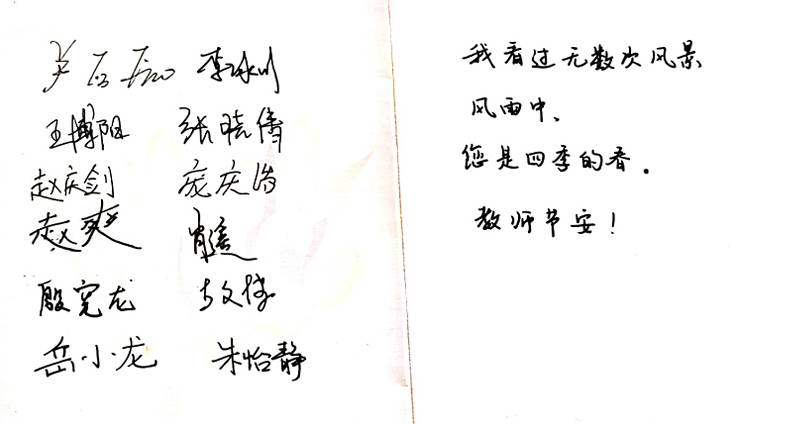 李冰川
王博阳 张晓倩
赵庆剑 庞庆浩
赵爽 肖遥
殷宪龙
岳小龙 朱怡静
我看过无数次风景
风雨中、
您是四季的春.
教师节安!